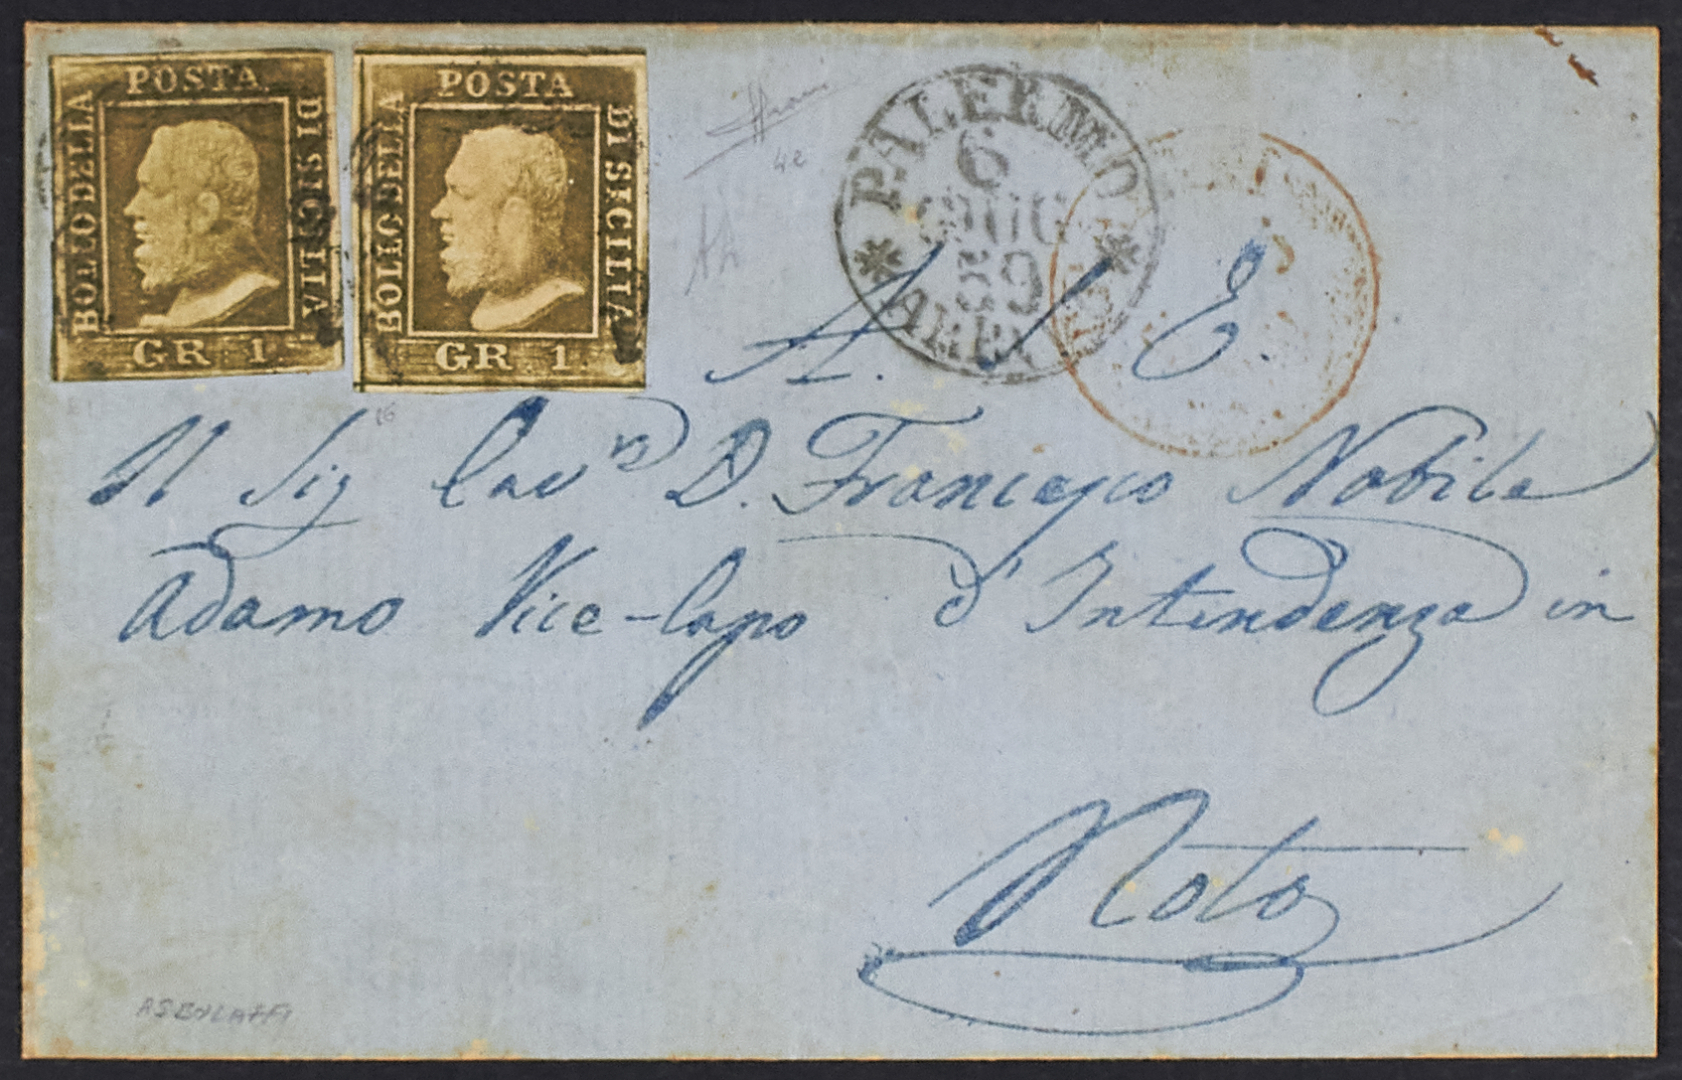 POSTA
BOLLO DELLA
DI SICILIA
GR. 1.
POSTA
BOLLO DELLA
DI SICILIA
GR. 1.
4e
16
PALERMO
6
GIU
59
A. S. E.
Il Sig Cavre D. Francesco Nobile
Adamo Vice-Capo d'Intendenza in
Noto
ASBOLAFFI